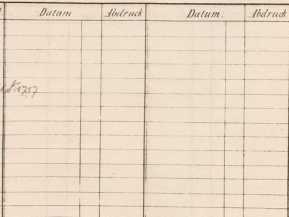 Datum Abdruck Datum. Abdruck
1757